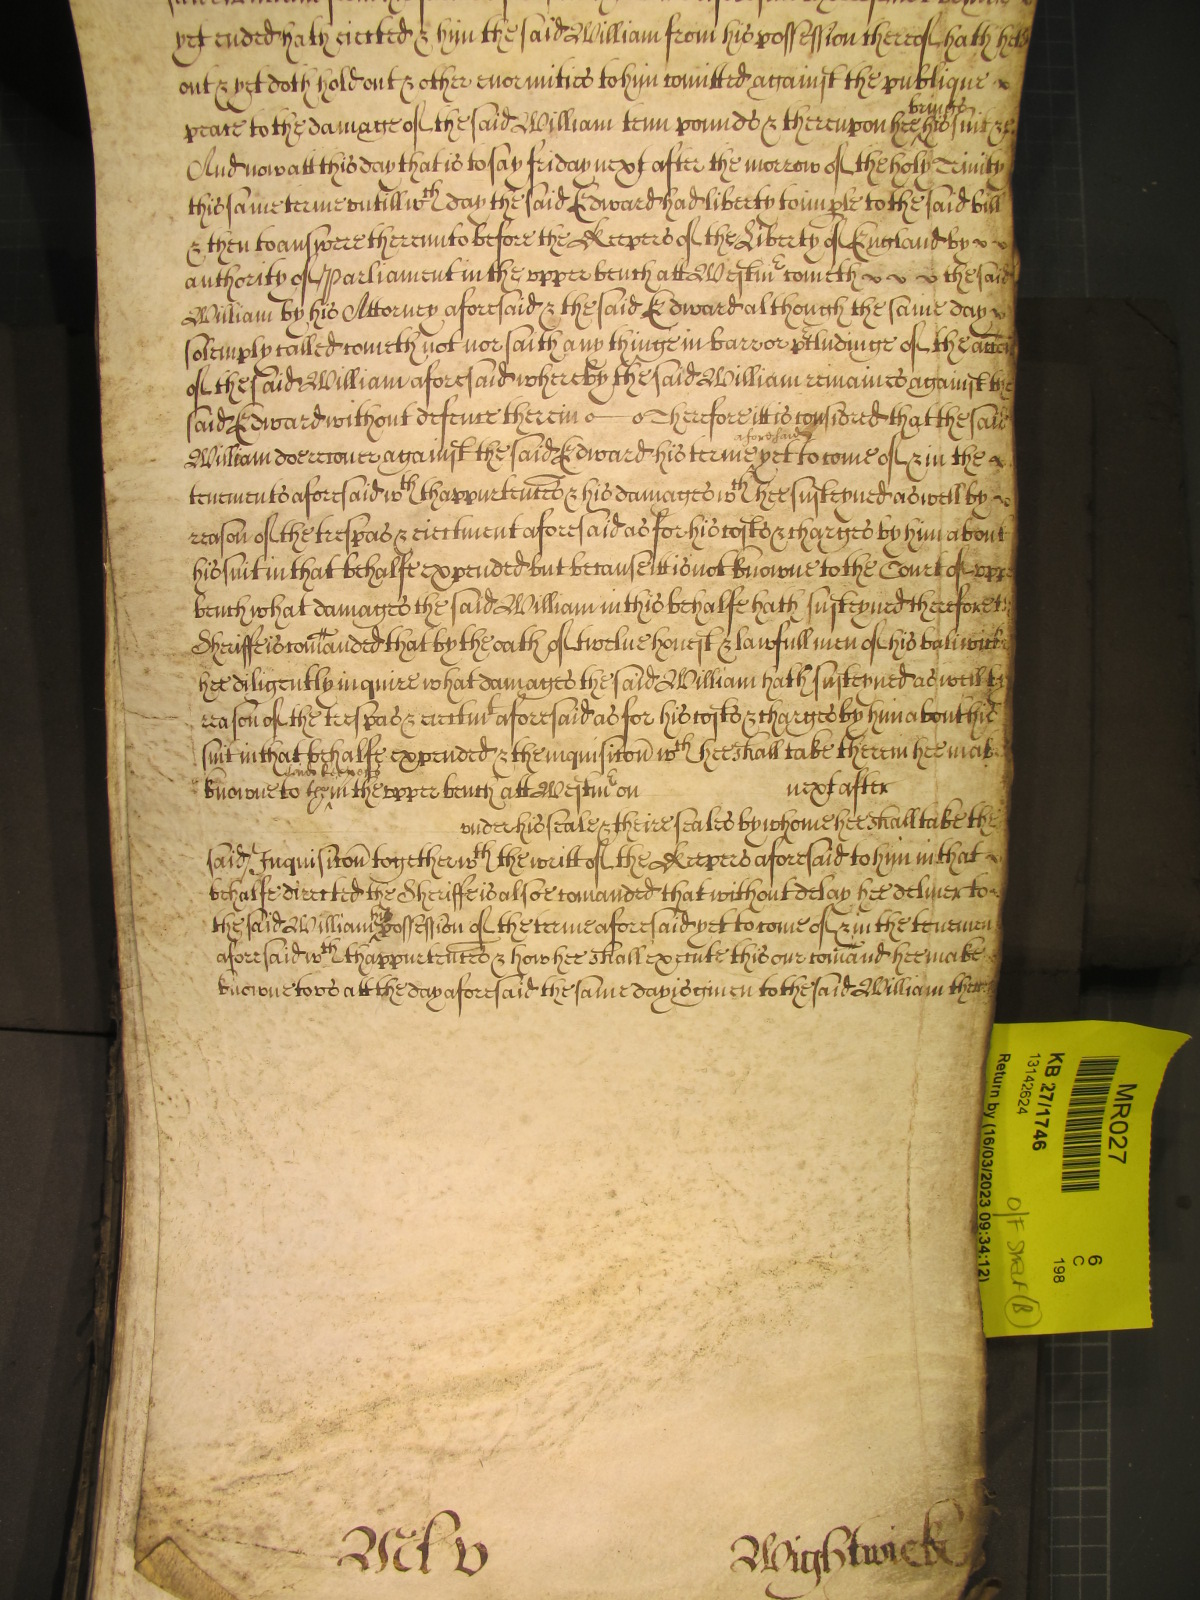 yet ended hath ejected & him the said William from his possession thereof hath held
out & yet doth hold out & other enormities to him comitted against the publique
peace to the damage of the said William tenn pounds & thereupon hee brings his suit &c
And now att this day that is to say friday next after the morrow of the holy Trinity
this same terme untill wth day the said Edward had liberty to imple to the said bill
& then to answere thereunto before the Keepers of the Liberty of England by
authority of Parliament in the upper bench att Westmr cometh the said
William by his Attorney aforesaid & the said Edward although the same day
solemply called cometh not nor saith any thinge in barr or preludinge of the accon
of the said William aforesaid whereby the said William remaines against the
said Edward without defence therein Therefore itt is consid ered that the said
William doe recover against the said Edward his terme aforesaid yet to come of & in the
tenements aforesaid wth thappurtences & his damages wch hee susteyned as well by
reason of the trespas & ejectment aforesaid as for his costs & charges by him about
his suit in that behalfe expended but because itt is not knowne to the Court of upp
bench what damages the said William in this behalfe hath susteyned therefore t
Sheriffe is comanded that by the oath of twelve honest & lawfull men of his baliwicke
hee diligently inquire what damages the said William hath susteyned as well by
reason of the trespas & ejectmt aforesaid as for his costs & charges by him about his
suit in that behalfe expended & the inquisicon wch hee shall take therein hee make
knowne to in the upper bench att Westmr on next after
under his seale & theire seales by whome hee shall take the
said Inquisicon together wth the writt of the Keepers aforesaid to him in that
behalfe directed the Sheriffe is alsoe comanded that without delay hee deliver to
the said William his possession of the terme aforesaid yet to come of & in the tenemen
aforesaid wth thappurtences & how hee shall execute this our comand hee make
knowne to us att the day aforesaid the same day is given to the said William there
Wightwick
MR027
KB 27/1746
13142624
Return by (16/03/2023 09:34:12)
6
C
198
O/F SHELF (B)